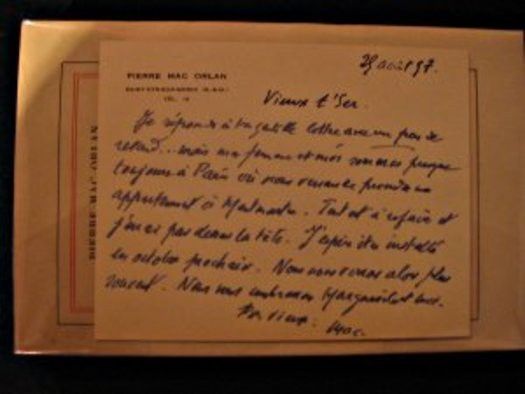 PIERRE MAC ORLAN
TÉL. 18
29 août 57.
Vieux t'Ser.
Je réponds à ta gentille lettre avec un peu de
retard... mais ma femme et moi sommes presque
toujours à Paris où nous venons de prendre un
appartement à Montmartre. Tout est à refaire et
j'en ai par dessus la tête. J'espère être installé
en octobre prochain. Nous nous verrons alors plus
souvent. Nous vous embrassons Marguerite et moi.
Ton vieux. Mac.
PIERRE MAC ORLAN